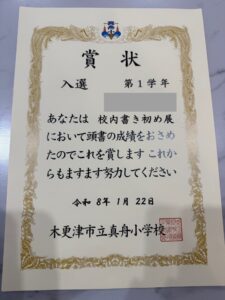 賞状
入選 第1学年
あなたは 校内書き初め展
において頭書の成績をおさめ
たのでこれを賞します これか
らもますます努力してください
令和8年1月22日
木更津市立真舟小学校